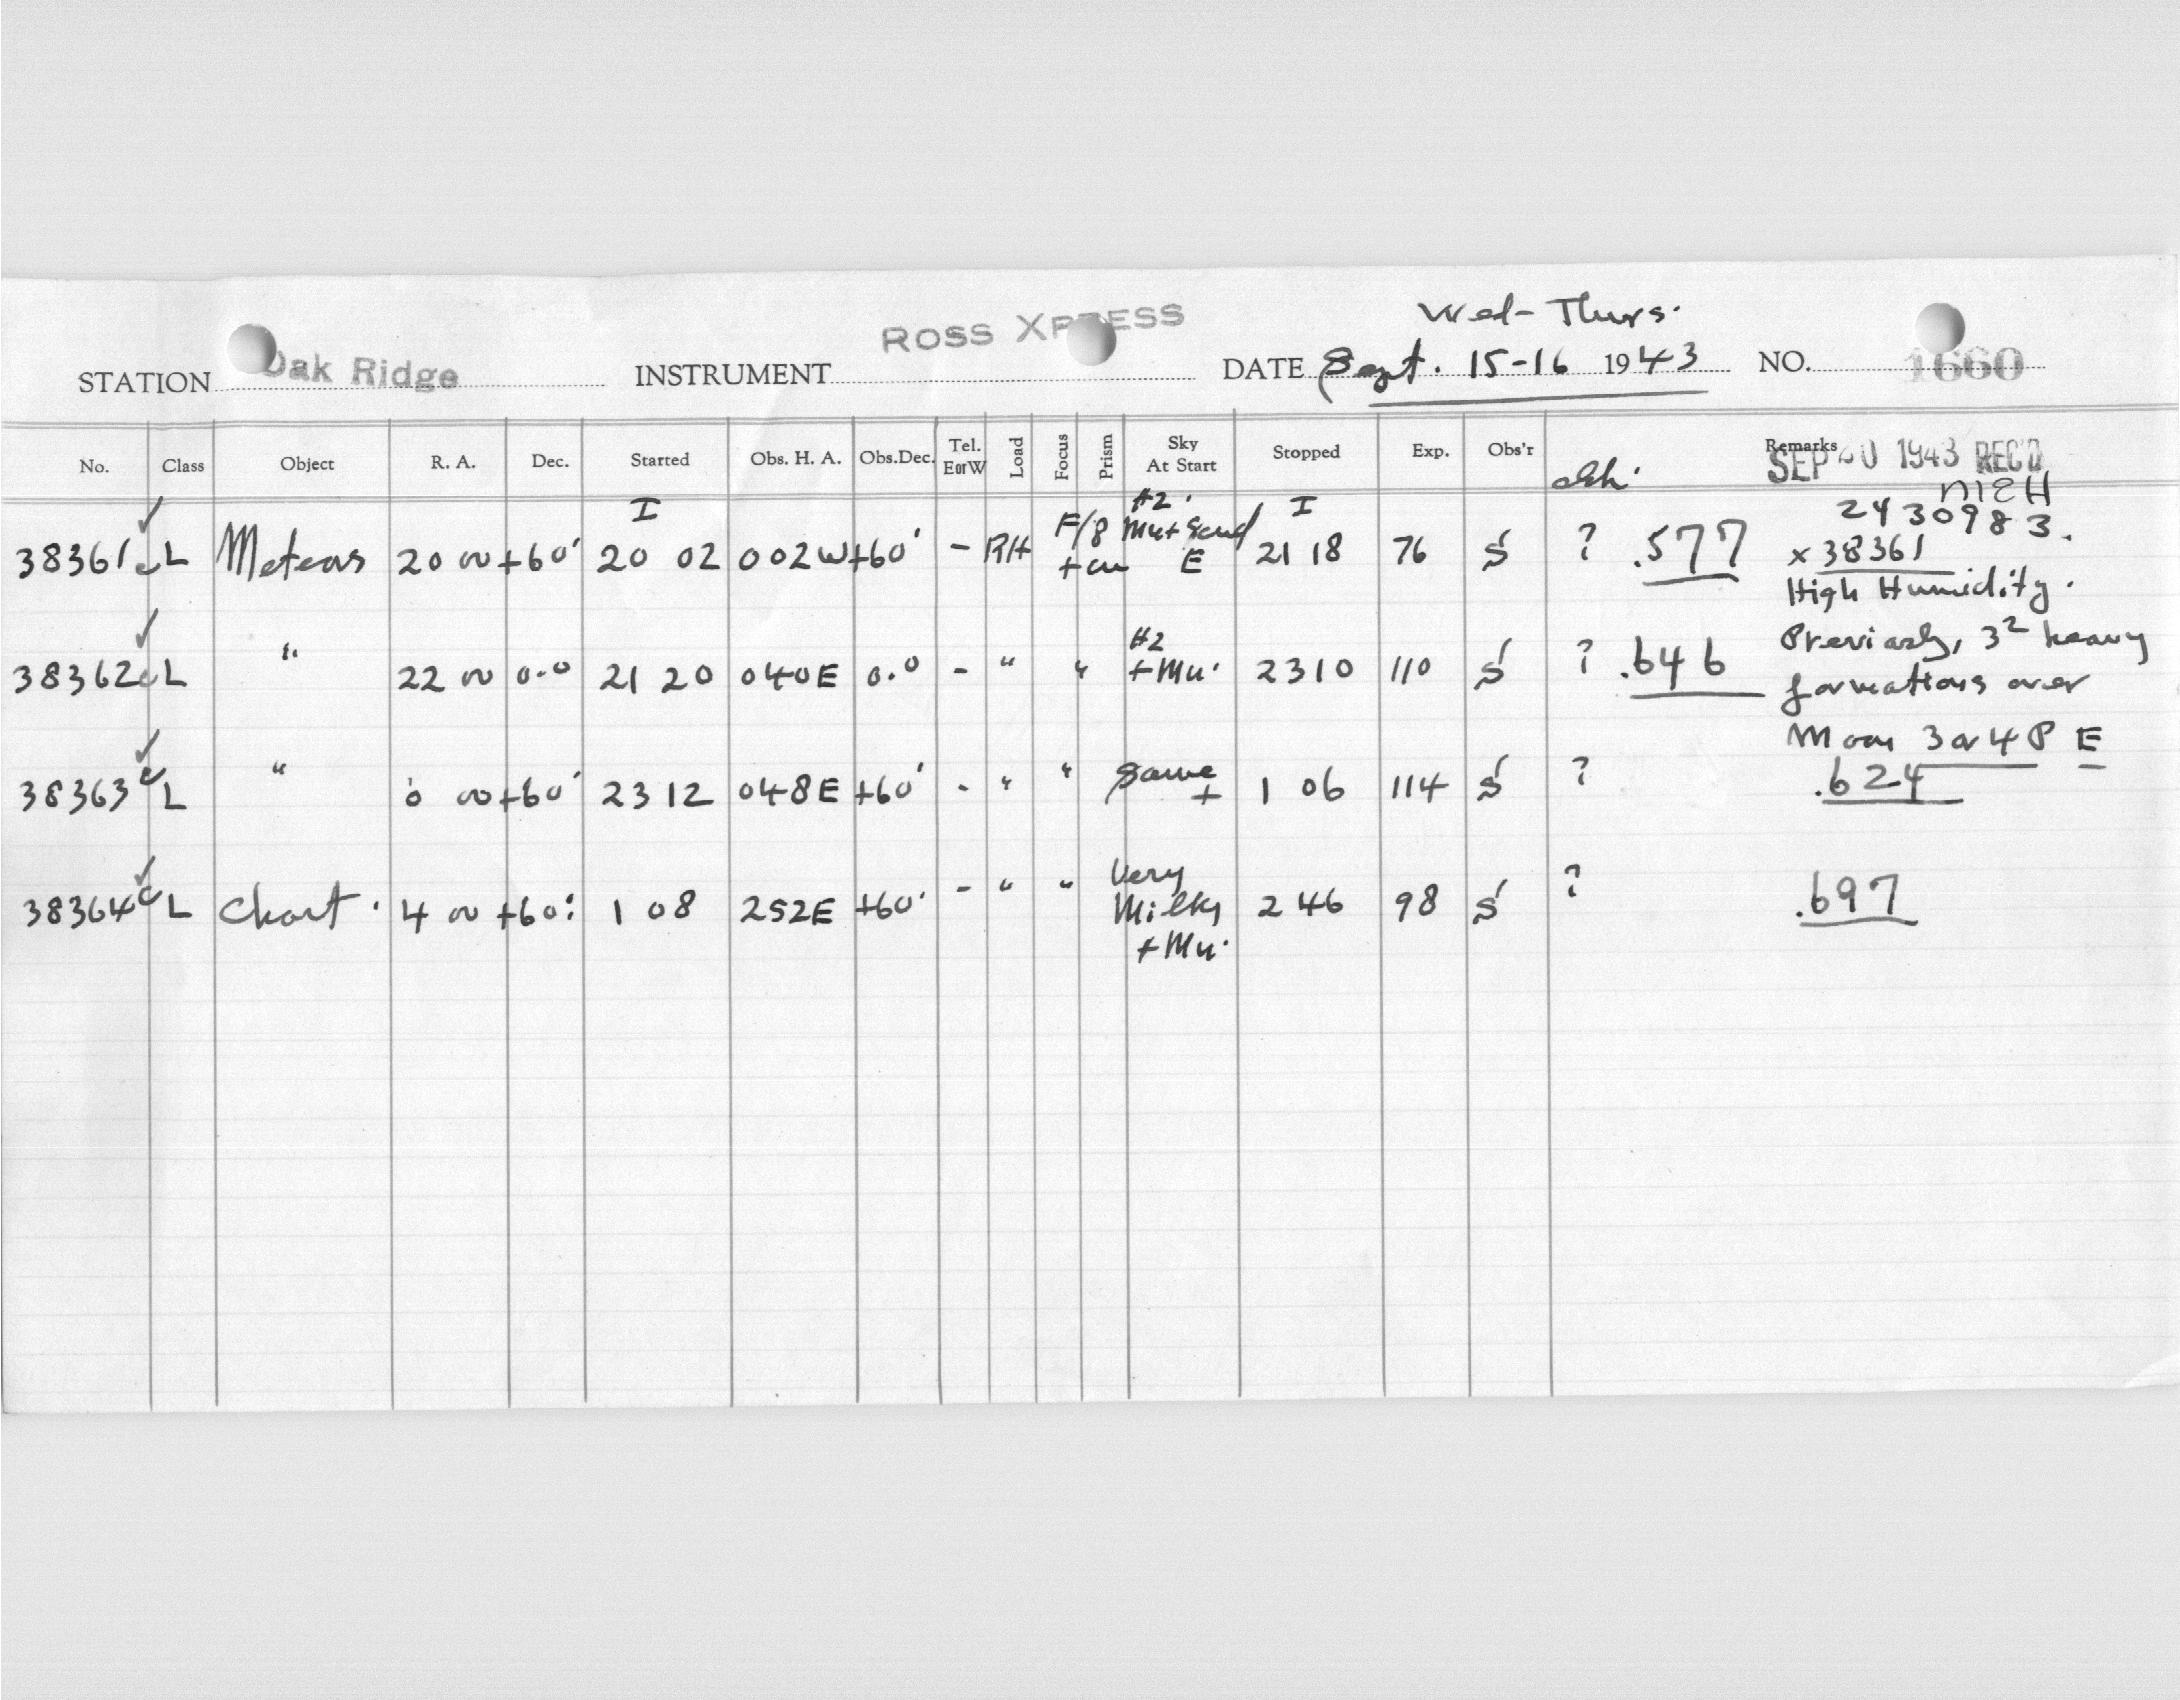 Wed-Thurs.
STATION Oak Ridge INSTRUMENT ROSS XPRESS DATE Sept. 15-16 1943 NO. 1660
No. Class Object R. A. Dec. Started Obs. H. A. Obs.Dec. Tel. EorW Load Focus Prism Sky At Start Stopped Exp. Obs'r Remarks
SEP 1943 REC'D
I #2 I 2430983.
38361 L Meteors 20 00 +60° 20 02 002W +60° - RH F/8 E 21 18 76 S ? .577 x38361
High Humidity.
38362 L " 22 00 0.0 21 20 040E 0.0 - " " #2 + Mu. 2310 110 S ? .646 Previously, 3² heavy
formations over
Moon 3 or 4 P E
38363 L " 0 00 +60° 2312 048E +60° - " " Same + 1 06 114 S ? .624
38364 L Chart. 4 00 +60° 1 08 252E +60° - " " Very Milky + Mu. 2 46 98 S ? .697